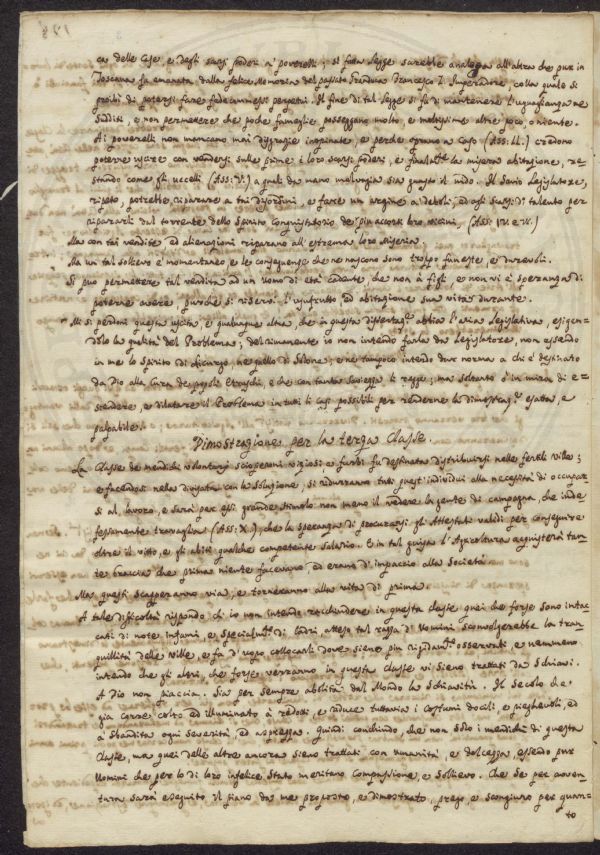 ca delle Case, e degli scarsi poderi a' poverelli: si fatta Legge sarebbe analoga all'altra che pur in
Toscana fu emanata dalla felice Memoria del passato Granduca Francesco I. Imperadore, colla quale si
proibì di potersi fare fedecommessi perpetui. Il fine di tal Legge si fu di mantenere l'uguaglianza ne
Sudditi, e non permettere che poche famiglie posseggano molto, e moltissime altre poco, o niente.
A i poverelli non mancano mai disgrazie inopinate, e perche oprano a Caso (Ass: LL.) credono
potervi uscire con vendersi sulle prime i loro scarsi poderi, e finalmte la misera abitazione, re-
stando come gli uccelli (Ass: V.) a quali da mano malvagia sia guasto il nido. Il Savio Legislatore,
ripeto, potrebbe riparare a tai disordini, e fare un argine a' deboli, ed agli scarsi di talento per
ripararli dal torrente dello Spirito Conquistatorio de' più accorti loro vicini, (Ass: IV. e V.)
Ma con tai vendite, ed alienazioni riparano all'estrema loro Miseria.
Ma un tal sollievo è momentaneo, e le conseguenze che ne nascono sono troppo funeste, e durevoli.
Si può permettere tal vendita ad un Uomo di età cadente, che non à figli, e non vi è speranza di
poterne avere, purche si riservi l'usufrutto, ed abitazione sua vita durante.
Mi si perdoni questa uscita, e qualunque altra, che in questa dissertazne abbia l'aria Legislativa, esigen-
dolo la qualità del Problema; del rimanente io non intendo farla da Legislatore, non essendo
in me lo Spirito di Licurgo, ne quello di Solone; e ne tampoco intendo dar norma a chi è destinato
da Dio alla Cura de popoli Etruschi, e che con tanta Saviezza li regge; ma soltanto ò in mira di e-
stendere, e dilatare il Problema in tutti li casi possibili per renderne la dimostrazne esatta, e
palpabile.
Dimostrazione per la terza Classe.
La Classe de' mendichi volontarj scioperati viziosi, e furbi fu destinata distribuirsi nelle fertili ville;
e facendosi nella divisata con la Soluzione, si ridurranno tutti quest'individui alla necessità di occupar-
si al lavoro, e sarà per essi grande stimolo non meno il vedere la gente di campagna, che inde-
fessamente travaglia (Ass: X.), che la speranza di procurarsi gli Attestati validi per conseguire
oltre il vitto, e gli abiti qualche competente Salario. E in tal guisa l'Agricoltura acquisterà tan-
te braccia che prima niente facevano ed erano d'impaccio alla Società.
Ma questi scapperanno via, e torneranno alla vita di prima.
A tale difficoltà rispondo: ch'io non intendo racchiudere in questa classe quei che forse sono intac-
cati di note infami, e specialmte di ladri, atteso tal razza d'Uomini sconvolgerebbe la tran-
quillità delle ville, e fa d'uopo collocarli dove sieno più rigidamte osservati, e nemmeno
intendo che gli altri, che forse verranno in questa Classe vi sieno trattati da Schiavi.
A Dio non piaccia. Sia per sempre abolita dal Mondo la Schiavitù. Il Secolo che
già corre colto ed illuminato à redotti, e riduce tuttavia i costumi docili, e pieghevoli, ed
à sbandita ogni severità, ed asprezza. Quindi conchiudo, che non solo i mendichi di questa
Classe, ma quei delle altre ancora sieno trattati con umanità, e dolcezza, essendo pur
Uomini che per lo di loro infelice Stato meritano Compassione, e Sollievo. Che se per avven-
tura sarà eseguito il piano da me proposto, e dimostrato, prego e scongiuro per quan-
to